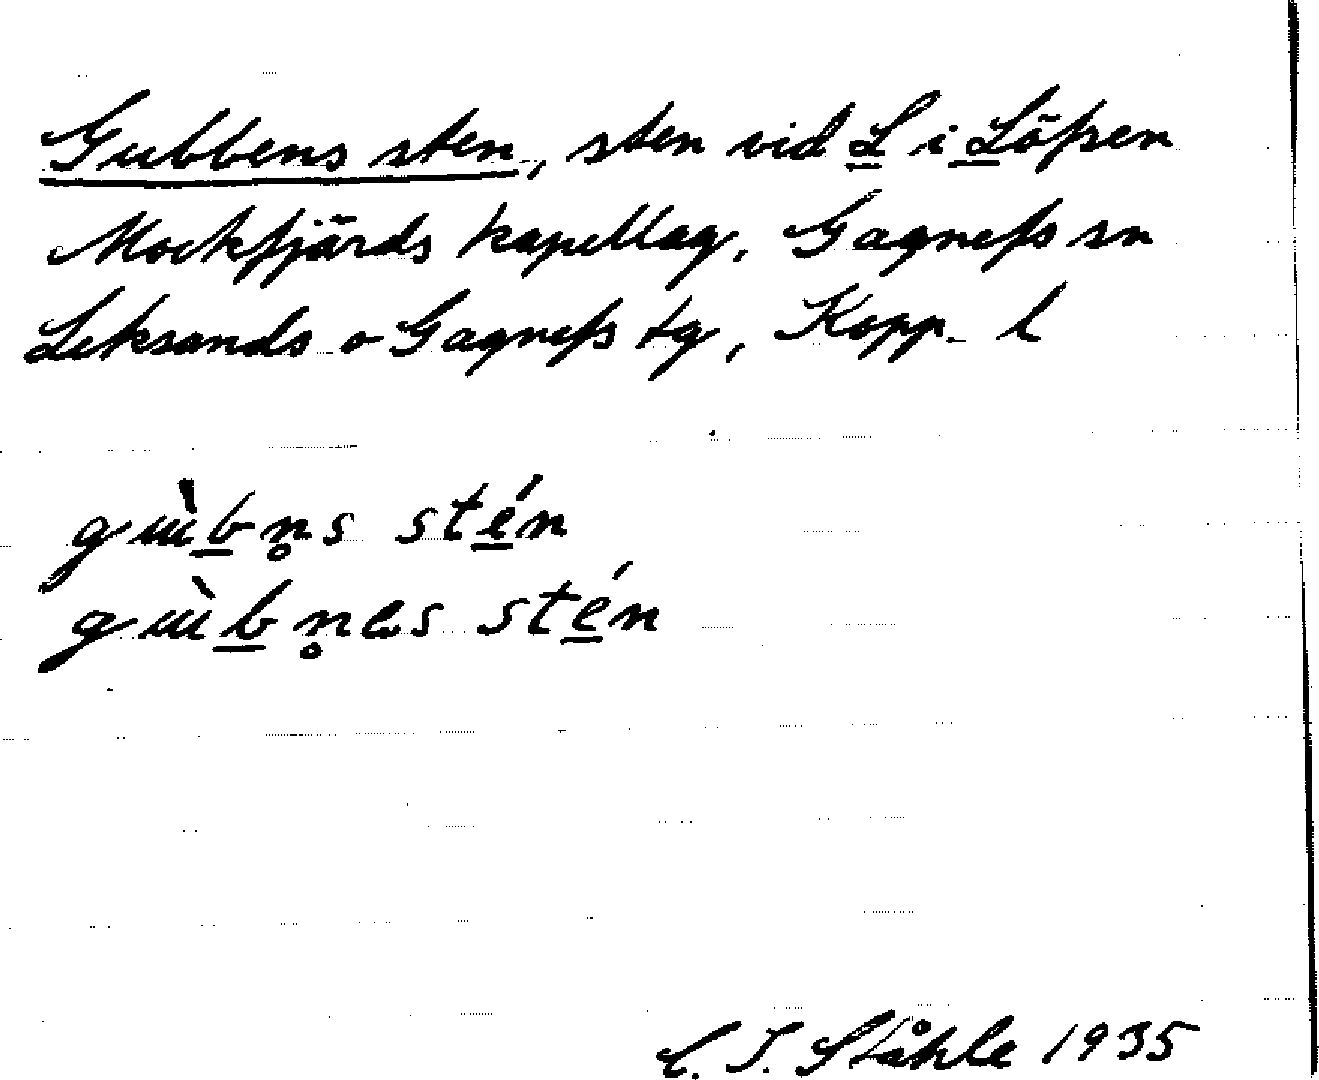 Gubbens sten, sten vid L i Löpsen
Mockfjärds kapellag, Gagnefs sn
Leksands o Gagnefs tg, Kopp. l
gùbn̥s stén
gùbn̥es stén
C. I. Ståhle 1935